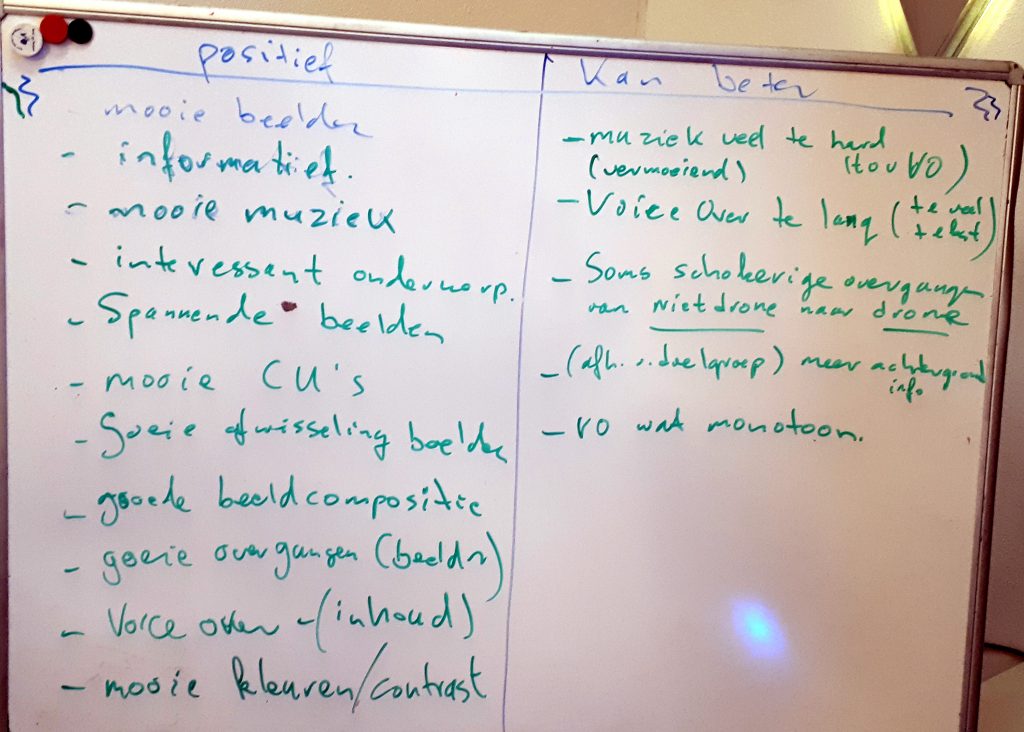 positief
mooie beelden
- informatief.
- mooie muziek
- interessant onderwerp.
- Spannende beelden
- mooie CU's
- Goeie afwisseling beelden
- goede beeldcompositie
- goeie overgangen (beeldn)
- Voice over - (inhoud)
- mooie kleuren/contrast
Kan beter
- muziek veel te hard
(vermooiend) (tov VO)
- Voice Over te lang (te veel
tekst)
- Soms schokerige overgangen
van niet drone naar drone
- (afh. v. doelgroep) meer achtergrond
info
- VO wat monotoon.